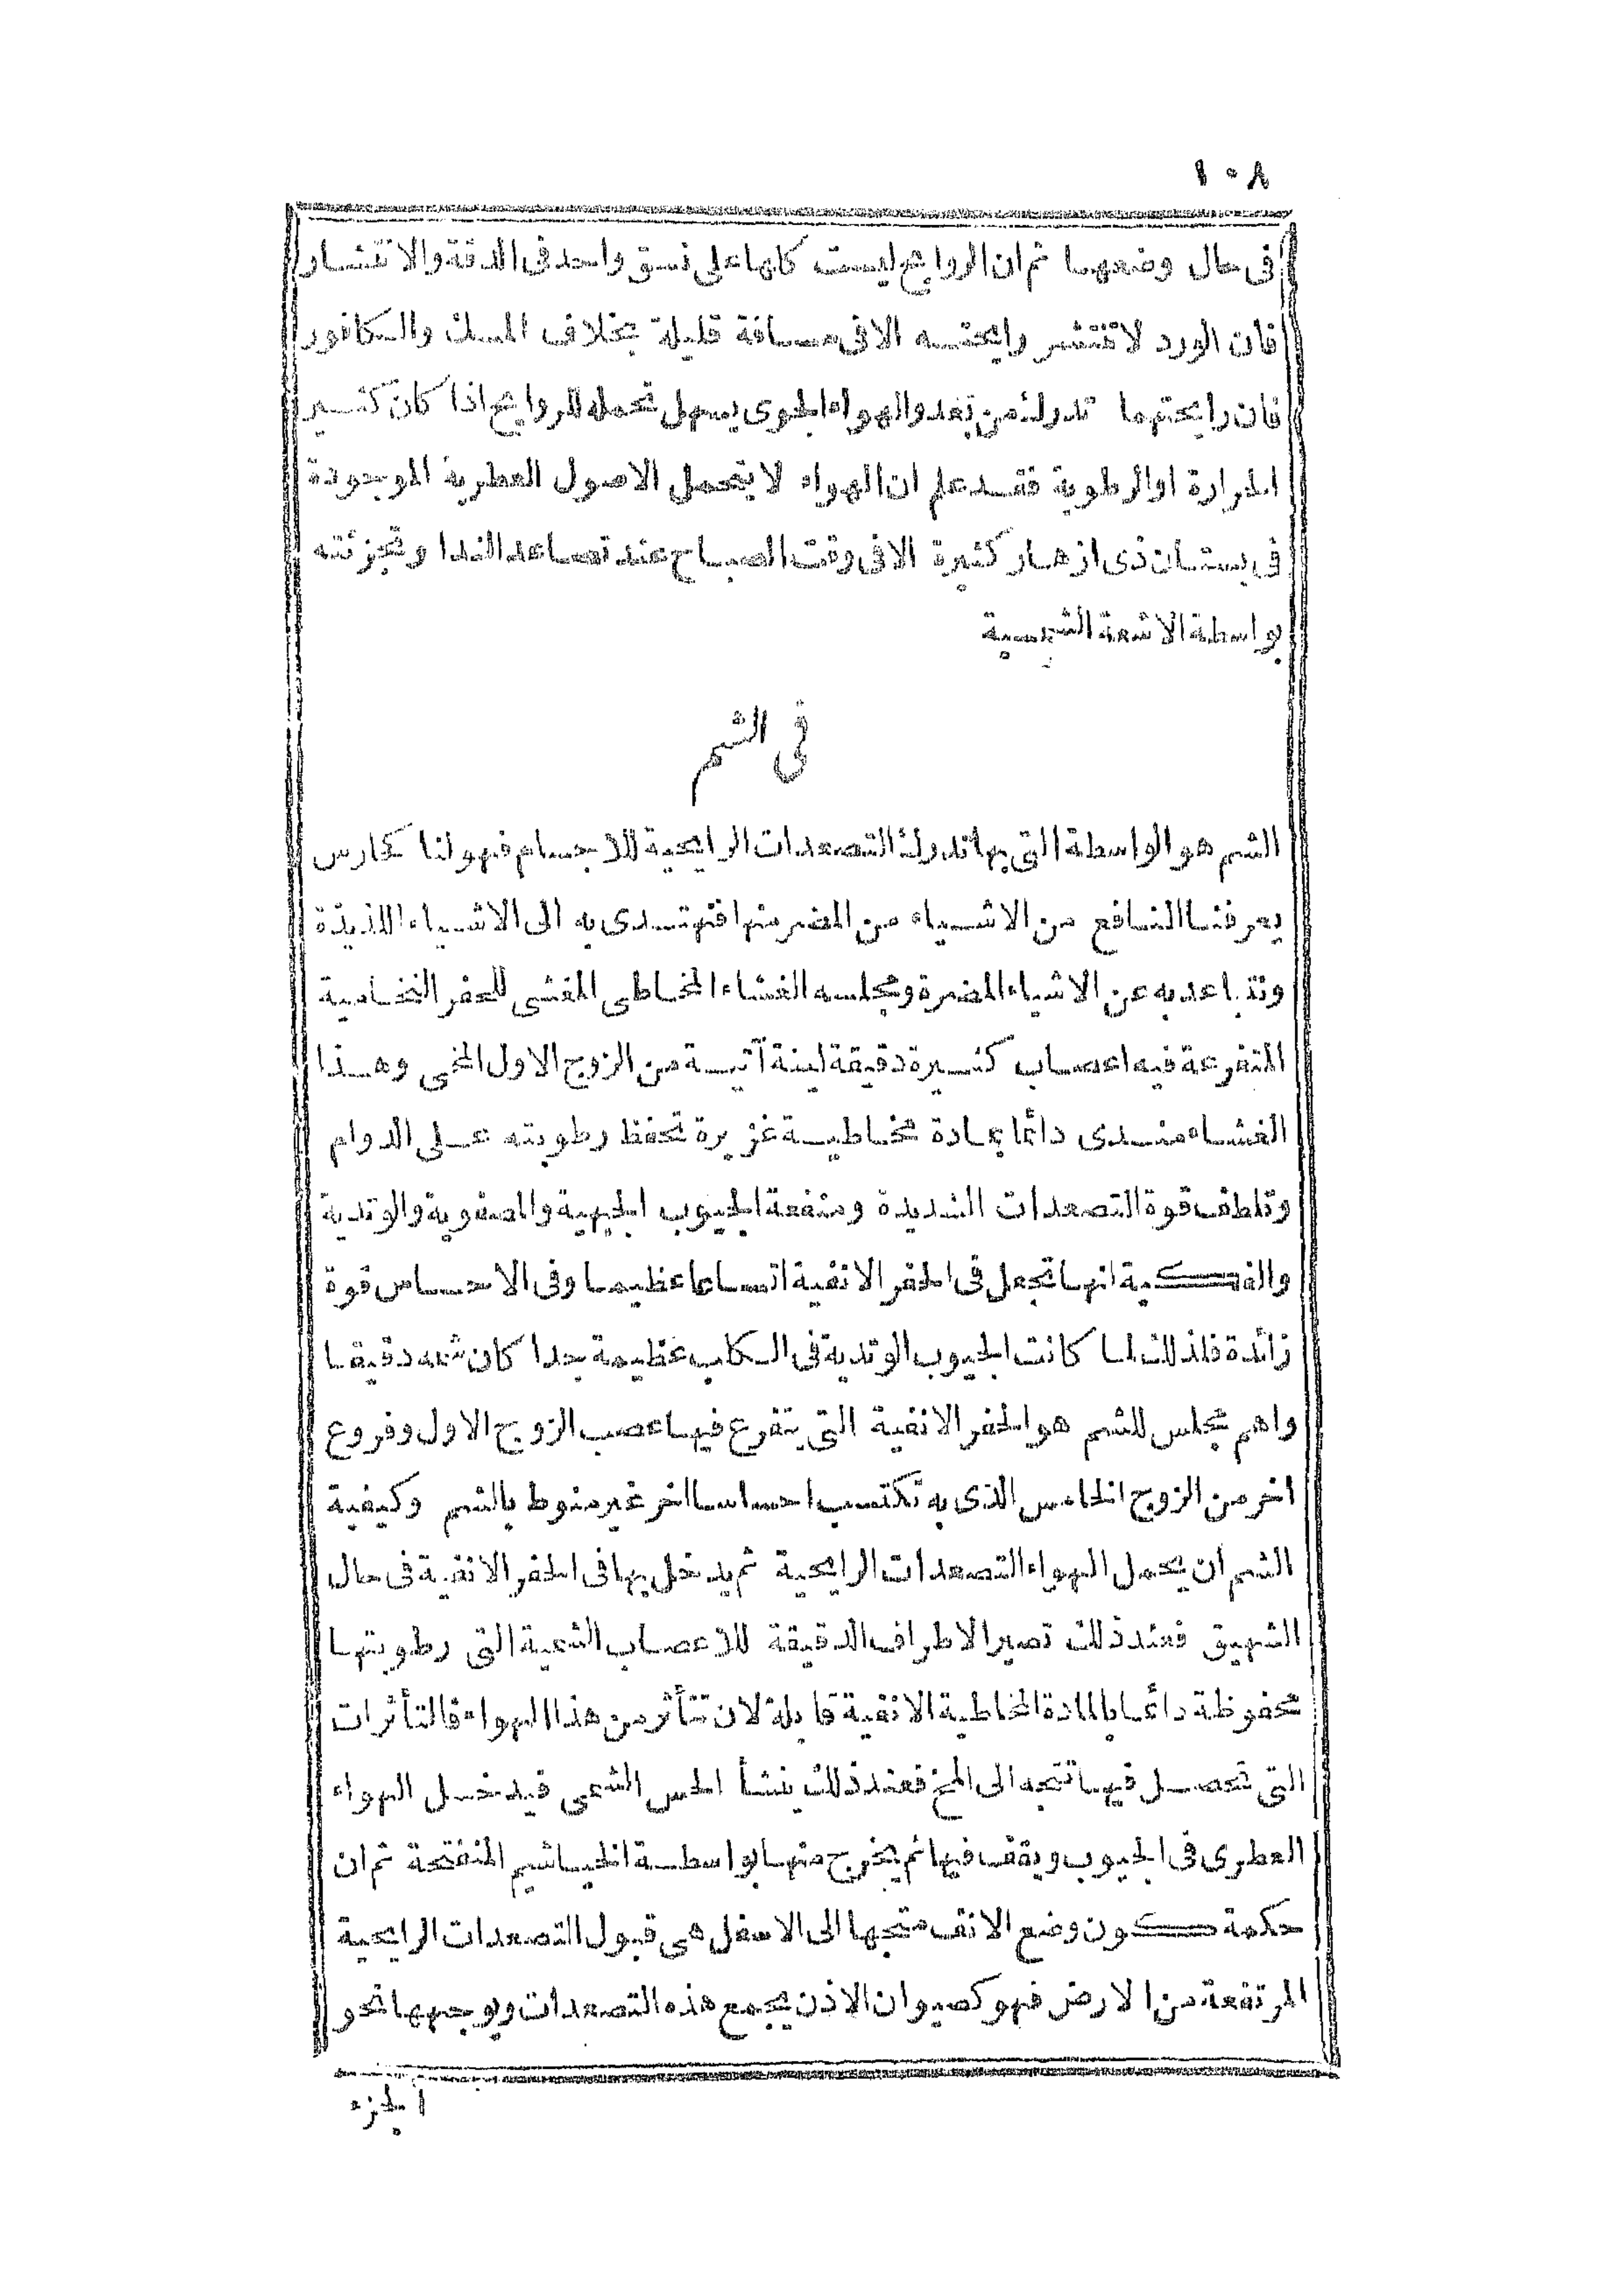 ١٠٨
فى حال وضعهما ثم ان الروايح ليست كلها على نسق واحد فى الدقة والانتشار
فان الورد لا تنتشر رايحته الا فى مسافة قليلة بخلاف المسك والكافور
فان رايحتهما تدرك من بعد والهواء الجوى يسهل تحمله للروايح اذا كان كثير
الحرارة او الرطوبة فقد علم ان الهواء لا يتحمل الاصول العطرية الموجودة
فى بستان ذى ازهار كثيرة الا فى وقت الصباح عند تصاعد الندا وتجزئته
بواسطة الاشعة الشمسية
فى الشم
الشم هو الواسطة التى بها ندرك التصعدات الرايحية للاجسام فهو لنا كحارس
يعرفنا النافع من الاشياء من المضر منها فنهتدى به الى الاشياء اللذيذة
ونتباعد به عن الاشياء المضرة ومجلسه الغشاء المخاطى المغشى للحفر النخامية
المتفرعة فيه اعصاب كثيرة دقيقة لينة آتية من الزوج الاول المخى وهذا
الغشاء مندى دائما بمادة مخاطية غزيرة تحفظ رطوبته على الدوام
وتلطف قوة التصعدات الشديدة ومنفعة الجيوب الجبهية والمصفوية والوتدية
والفكية انها تجعل فى الحفر الانفية اتساعا عظيما وفى الاحساس قوة
زائدة فلذلك لما كانت الجيوب الوتدية فى الكلاب عظيمة جدا كان شمه دقيقا
واهم مجلس للشم هو الحفر الانفية التى يتفرع فيها عصب الزوج الاول وفروع
اخر من الزوج الخامس الذى به تكتسب احساسا اخر غير منوط بالشم وكيفية
الشم ان يحمل الهواء التصعدات الرايحية ثم يدخل بها فى الحفر الانفية فى حال
الشهيق فعند ذلك تصير الاطراف الدقيقة للاعصاب الشمية التى رطوبتها
محفوظة دائما بالمادة المخاطية الانفية قابلة لان تتأثر من هذا الهواء فالتأثرات
التى تحصل فيها تتجه الى المخ فعند ذلك ينشأ الحس الشمى فيدخل الهواء
العطرى فى الجيوب ويقف فيها ثم يخرج منها بواسطة الخياشيم المنفتحة ثم ان
حكمة كون وضع الانف متجها الى الاسفل هى قبول التصعدات الرايحية
المرتفعة من الارض فهو كصيوان الاذن يجمع هذه التصعدات ويوجهها نحو
الجزء